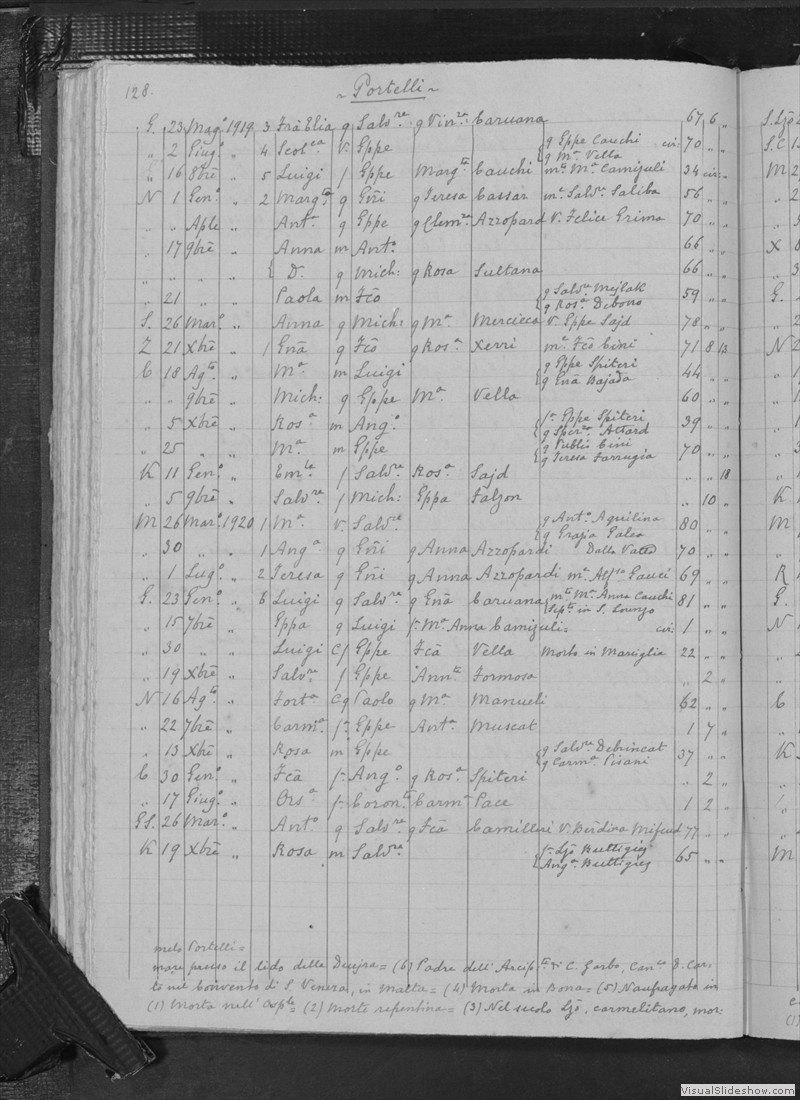 128.
~ Portelli ~
G. 23 Mag.º 1919 3 Frà Elia g Salv.re g Vin.za Caruana 67 6 "
" 2 Giug.º " 4 Scol.ca V. Eppe { g Eppe Cauchi cir: 70 " "
g M.a Vella
" 16 8brē " 5 Luigi f Eppe Marg.ta Cauchi m.to M.a Camijuli 34 cir: "
N 1 Gen.º " 2 Marg.ta g Gñi g Teresa Cassar m.e Salv.e Saliba 56 " "
" " Aple " Ant.a g Eppe g Clem.za Azzopard V. Felice Grima 70 " "
" 17 9brē " Anna m Ant.º 66 " "
" " " " { D. g Mich: g Rosa Sultana 66 " "
" 21 " " Paola m Fcō { g Salv.re Mejlak 59 " "
g Ros.a Debono
S. 26 Mar.º " Anna g Mich: g M.a Mercieca V. Eppe Sajd 78 " "
Z 21 Xbrē " 1 Gnā g Fcō g Ros.a Xerri m.e Fcō Cini 71 8 13
C 18 Ag.to " M.a m Luigi { g Eppe Spiteri 44 " "
g Gnā Bajada
" " 9brē " Mich: g Eppe M.a Vella 60 " "
" 5 Xbrē " Ros.a m Ang.º { f. Eppe Spiteri 39 " "
g Sper.za Attard
" 25 " " M.a m Eppe { g Publi Cini 70 " "
g Teresa Farrugia
K 11 Gen.º " Em.le f Salv.re Ros.a Sajd " " 18
" 5 9brē " Salv.re f Mich: Eppa Falzon " 10 "
M 26 Mar.º 1920 1 M.a V. Salv.re { g Ant.º Aquilina 80 " "
g Grazia Galea
" 30 " " 1 Ang.a g Gñi g Anna Azzopardi Dalla Valed 70 " "
" 1 Lug.º " 2 Teresa g Gñi g Anna Azzopardi m.e Alf.so Gauci 69 " "
G. 23 Gen.º " 6 Luigi g Salv.re g Gnā Caruana { m.to M.a Anna Cauchi 81 " "
Sep.to in S. Lourgo
" 15 7brē " Eppa g Luigi f. M.a Anna Camijuli = cir: 1 " "
" 30 " " Luigi C f Eppe Fcā Vella Morto in Marsiglia 22 " "
" 19 Xbrē " Salv.re f Eppe Ann.ta Formosa " 2 "
N 16 Ag.to " Fort.a C g Paolo g M.a Manueli 62 " "
" 22 7brē " Carm.a f. Eppe Ant.a Muscat 1 7 "
" 13 Xbrē " Rosa m Eppe { g Salv.re Debrincat 37 " "
g Carm.a Pisani
C 30 Gen.º " Fcā f. Ang.º g Ros.a Spiteri " 2 "
" 17 Giug.º " Ors.a f. Coron.to Carm.a Pace 1 2 "
GS. 26 Mar.º " Ant.º g Salv.re g Fcā Camilleri V. Berdina Mifsud 77 " "
K 19 Xbrē " Rosa m Salv.re { f. Ljō Buttigieg 65 " "
Ang.a Buttigieg
melo Portelli =
mare presso il lido della Duejra = (6) Padre dell' Arcip.te di C. Garbo, Can.co D. Car-
to nel Convento di S. Venera, in Malta = (4) Morta in Bona = (5) Naufragato in
(1) Morta nell' Osp.le = (2) Morte repentina = (3) Nel secolo Ljō, carmelitano, mor:
VisualSlideshow.com